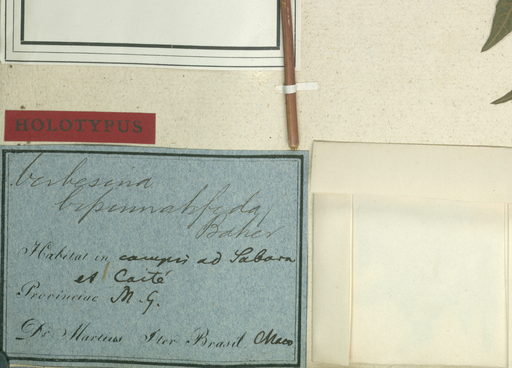 HOLOTYPUS
Verbesina
bipinnatifida
Baker
Habitat in campis ad Sabara
et Caité
Provinciae M. G.
Dr. Martius Iter Brasil